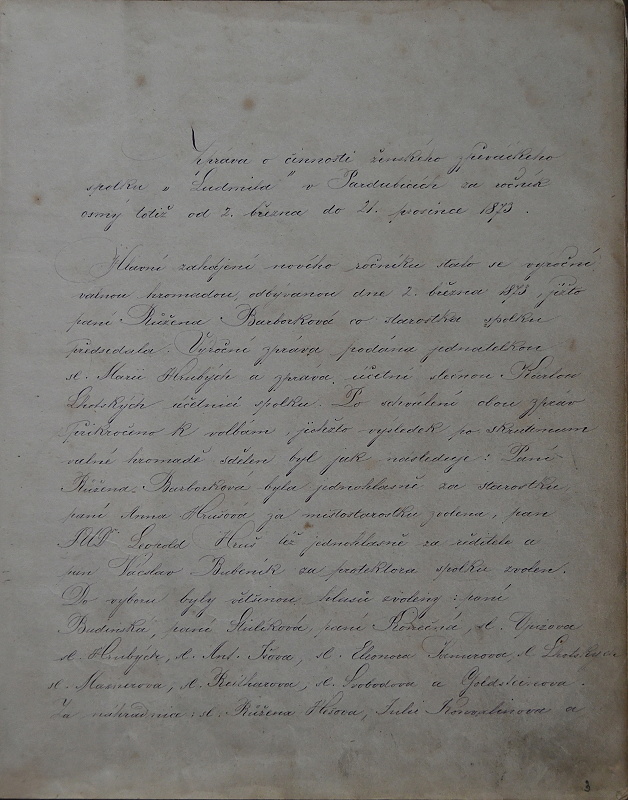 Zpráva o činnosti ženského zpěváckého
spolku v "Ludmila" v Pardubicích za ročník
osmý totiž od 2. března do 21. prosince 1873.
Hlavní zahájení nového ročníku stalo se výroční
valnou hromadou, odbývanou dne 2. března 1873, jížto
paní Růžena Barborková co starostka spolku
předsedala. Výroční zpráva podána jednatelkou
sl. Marií Hrubých a zpráva účetní slečnou
Lhotských účetnicí spolku. Po schválení obou zpráv
přikročeno k volbám, jichžto výsledek po skrutinium
valné hromadě sdělen byl jak následuje: Paní
Růžena Barborkova byla jednohlasně za starostku
paní Anna Hrušova za místostarostku zvolena, pan
JUDr Leopold Hruš též jednohlasně za ředitele a
pan Václav Bubeník za protektora spolku zvolen.
Do výboru byly většinou hlasů zvoleny: paní
Budinská, paní Štulíková, paní sl.
sl. Hrubých, sl. Ant. sl. Eleonora sl.
sl. sl. Reitharova, sl. Svobodova a Goldsteinova.
Za náhradnice: sl. Růžena Julii a
3